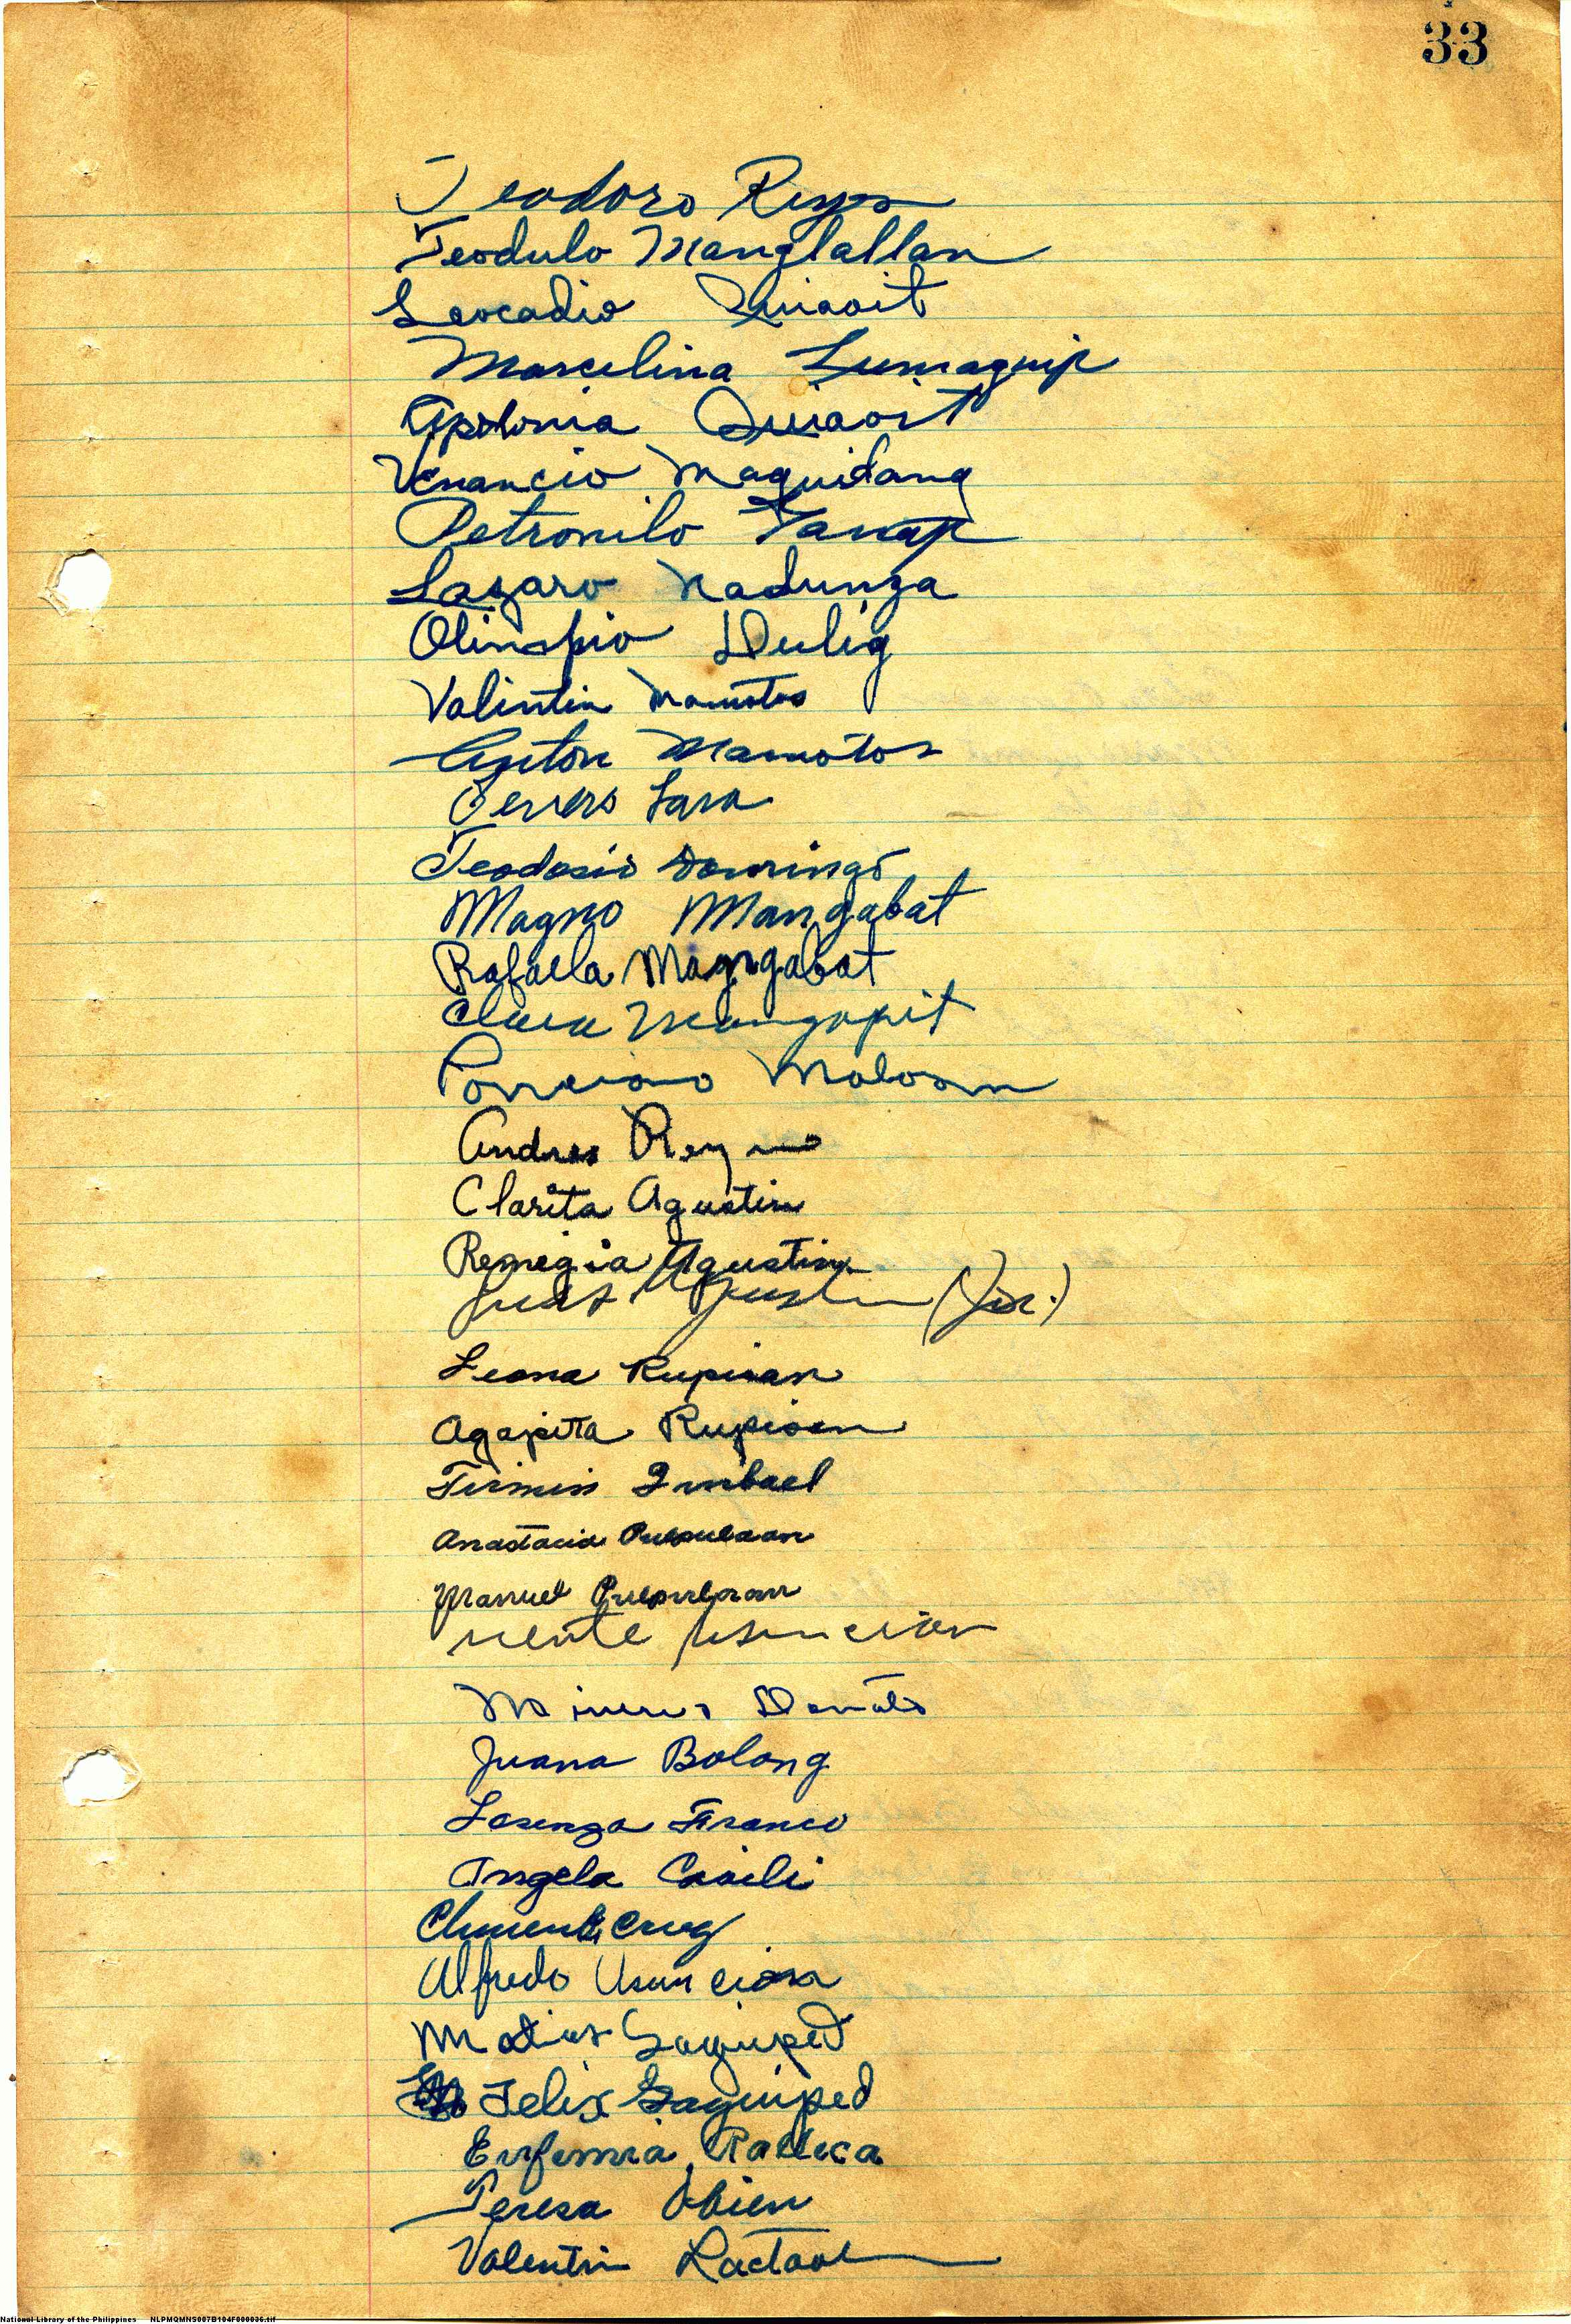 33
Teodoro Reyes
Teodulo Manglallan
Leocadio Quiaoit
Marcelina Lumaquip
Apolonia Quiaoit
Venancio Maguidang
Petronilo Yanap
Lazaro Nadunza
Olimpio Dulig
Valintin Mamotos
Anton Mamotos
Lara
Teodosio Domingo
Magno Mangabat
Rafaela Mangabat
Clara Mangapit
Ponciano
Andres
Clarita Agustin
Remegia Agustin
Agustin (Jr.)
Leona Rupisan
Agapita Rupisan
Fermin
Anastacia Pulpulaan
Manuel Pulpulaan
Asuncion
Donato
Juana Bolong
Lorenza Franco
Angela Casili
Clemente Cruz
Alfredo Usuncion
Matias Saguiped
Felix Saguiped
Eufemia
Teresa Obien
Valentin Lactaoen
National Library of the Philippines NLPMQMNS007B104F000036.tif